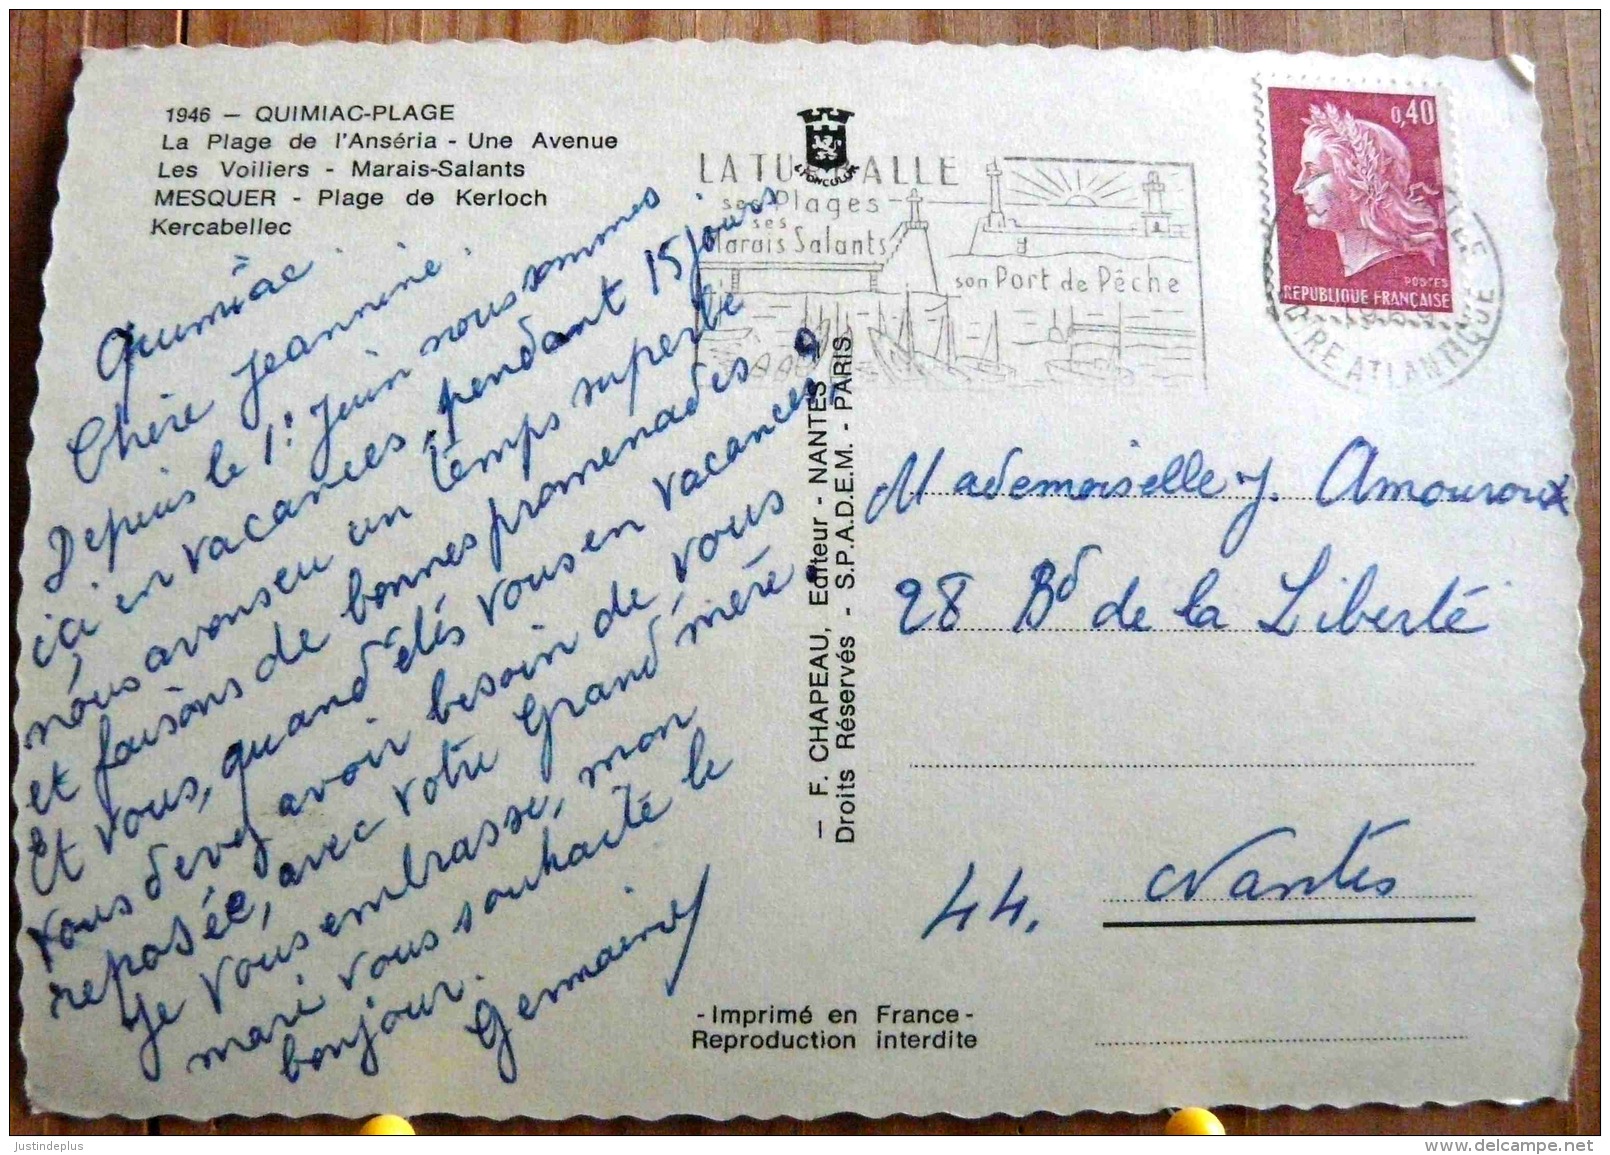 1946 — QUIMIAC-PLAGE
La Plage de l'Anséria - Une Avenue
Les Voiliers - Marais-Salants
MESQUER - Plage de Kerloch
Kercabellec
Quimiac
Chère Jeannine
Depuis le 1: Juin nous sommes
ici en vacances, pendant 15 jours
nous avons eu un temps superbe
et faisons de bonnes promenades.
Et vous, quand êtes vous en vacances?
vous devez avoir besoin de vous
reposée, avec votre Grand mère.
Je vous embrasse, mon
mari vous souhaite le
bonjour.
Germaine
— F. CHAPEAU, Editeur - NANTES
Droits Réservés - S.P.A.D.E.M. - PARIS
LA TURBALLE
ses Plages
ses
Marais Salants
son Port de Pêche
0,40
POSTES
REPUBLIQUE FRANÇAISE
LOIRE ATLANTIQUE
Mademoiselle J. Amouroux
28 Bd de la Liberté
44. Nantes
- Imprimé en France -
Reproduction interdite
justindeplus
www.delcampe.net